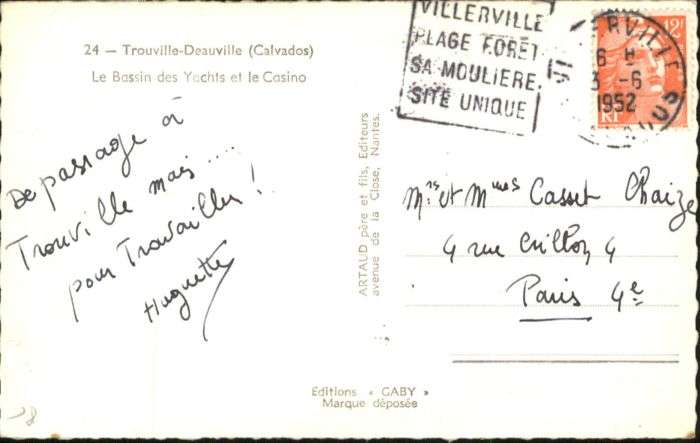 24 — Trouville-Deauville (Calvados)
Le Bassin des Yachts et le Casino
De passage à
Trouville mais ....
pour Travailler !
Huguette
ARTAUD père et fils, Editeurs
avenue de la Close, Nantes.
Editions « GABY »
Marque déposée
VILLERVILLE
PLAGE FORÊT
SA MOULIERE.
SITE UNIQUE
VILLERVILLE
6 H
3 -6
1952
CALVADOS
12F
RF
Mrs et Mmes Casset Chaize
4 rue Crillon 4
Paris 4e
18